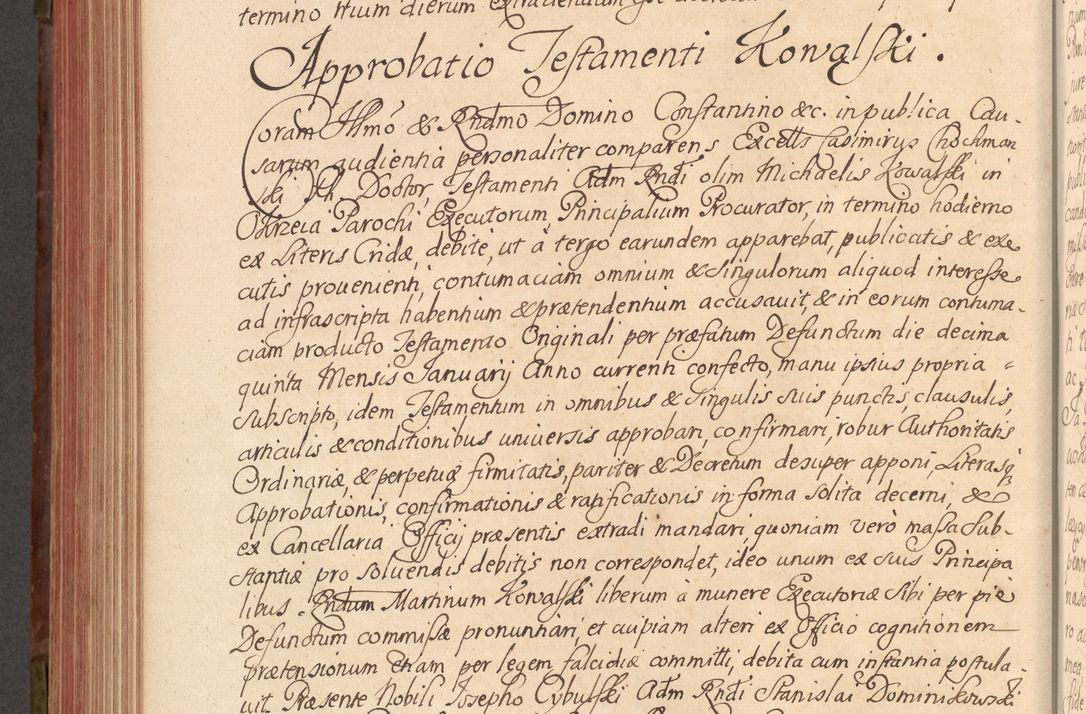 termino trium dierum extradendum
Approbatio Testamenti Kowalski.
Coram Illmo & Rndmo Domino Constantino &c. in publica Cau-
sarum audientia personaliter comparens Excells Casimirus Chochman
ski Ph Doctor, Testamenti Adm Rndi olim Michaelis Kowalski in
Okrzeia Parochi Executorum Principalium Procurator, in termino hodierno
ex Literis Cridæ, debite, ut à tergo earundem apparebat, publicatis & exe
cutis prouenienti, contumaciam omnium & Singulorum aliquod interesse
ad infrascripta habentium & prætendentium accusauit, & in eorum contuma-
ciam producto Testamento Originali per præfatum Defunctum die decima
quinta Mensis Januarij Anno currenti confecto, manu ipsius propria =
subscripto, idem Testamentum in omnibus & Singulis suis punctis, clausulis,
articulis & conditionibus uniuersis approbari, confirmari, robur Authoritatis
Ordinariæ, & perpetuæ firmitatis, pariter & Decretum desuper apponi, Literasq
Approbationis, confirmationis & ratificationis in forma solita decerni, &
ex Cancellaria Officij præsentis extradi mandari, quoniam verò massa sub-
stantiæ pro soluendis debitis non correspondet, ideo unum ex suis Principa
libus Rndum Martinum Kowalski liberum à munere Executoriæ Sibi per piè
Defunctum commissæ pronuntiari, et cuipiam alteri ex Officio cognitionem
prætensionum etiam per legem falcidiæ committi, debita cum instantia postula-
uit. Præsente Nobili Josepho Cybulski Adm Rndi Stanislai Dominikowski